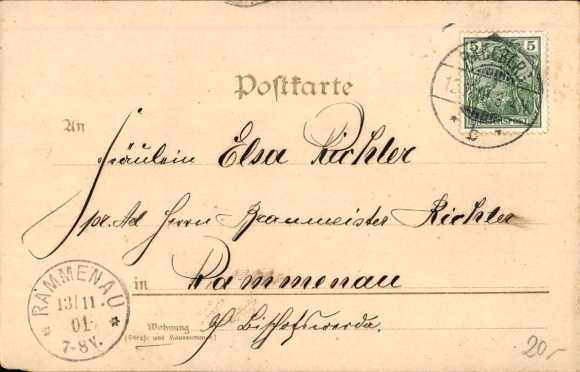 5 5
REICHSPOST
RADEBERG
* b *
Postkarte
An
Fräulein Elsa Richter
pr. Ad Herrn Braumeister Richter
in Rammenau
Wohnung b/ Bischofswerda.
(Straße und Hausnummer)
RAMMENAU
13/11
* 01 *
7-8V.
20-